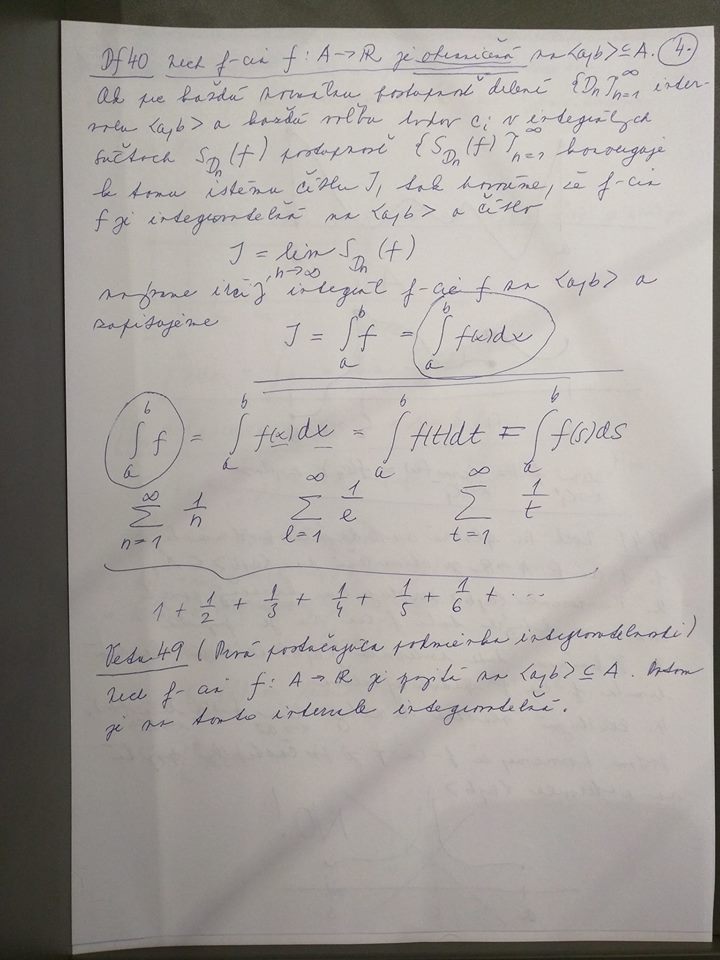 Df 40 Nech f-cia f: A → R je ohraničená na <a,b> ⊆ A. 4.
Ak pre každú normálnu postupnosť delení {Dn}_{n=1}^∞ inter-
valu <a,b> a každú voľbu bodov c_i v integrálnych
súčtoch S_{Dn}(f) postupnosť {S_{Dn}(f)}_{n=1}^∞ konverguje
k tomu istému číslu J, tak hovoríme, že f-cia
f je integrovateľná na <a,b> a číslo
J = lim_{n→∞} S_{Dn}(f)
nazývame určitý integrál f-cie f na <a,b> a
zapisujeme
J = ∫_a^b f = ∫_a^b f(x)dx
∫_a^b f = ∫_a^b f(x)dx = ∫_a^b f(t)dt = ∫_a^b f(s)ds
∑_{n=1}^∞ 1/n ∑_{l=1}^∞ 1/l ∑_{t=1}^∞ 1/t
1 + 1/2 + 1/3 + 1/4 + 1/5 + 1/6 + ...
Veta 49 (Prvá postačujúca podmienka integrovateľnosti)
Nech f-cia f: A → R je spojitá na <a,b> ⊆ A. Potom
je na tomto intervale integrovateľná.